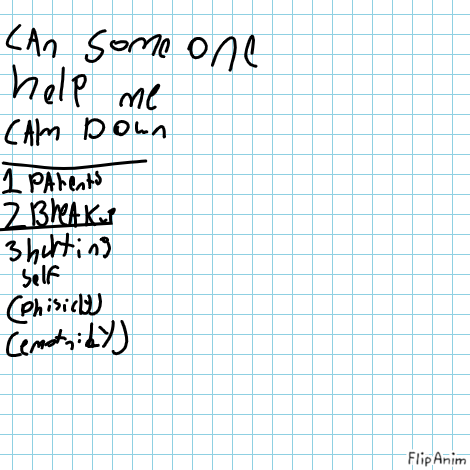 CAn some one
help me
CAlm Down
1 PArents
2 BreAKup
3 hurting
self
(phisicly)
(emotnidly)
FlipAnim